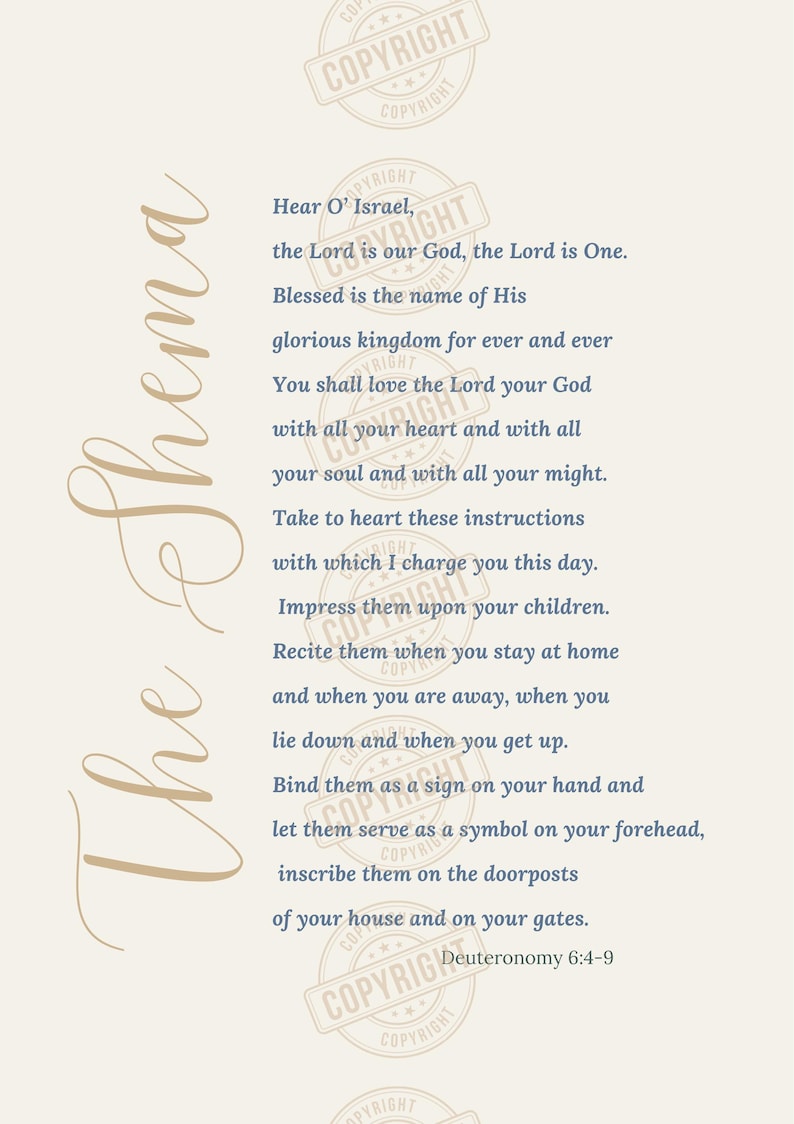 COPYRIGHT
COPYRIGHT
The Shema
COPYRIGHT
COPYRIGHT
Hear O’ Israel,
the Lord is our God, the Lord is One.
Blessed is the name of His
glorious kingdom for ever and ever
COPYRIGHT
COPYRIGHT
You shall love the Lord your God
with all your heart and with all
your soul and with all your might.
Take to heart these instructions
COPYRIGHT
COPYRIGHT
with which I charge you this day.
Impress them upon your children.
Recite them when you stay at home
COPYRIGHT
and when you are away, when you
COPYRIGHT
lie down and when you get up.
Bind them as a sign on your hand and
COPYRIGHT
let them serve as a symbol on your forehead,
COPYRIGHT
inscribe them on the doorposts
of your house and on your gates.
COPYRIGHT
Deuteronomy 6:4-9
COPYRIGHT
COPYRIGHT
COPYRIGHT